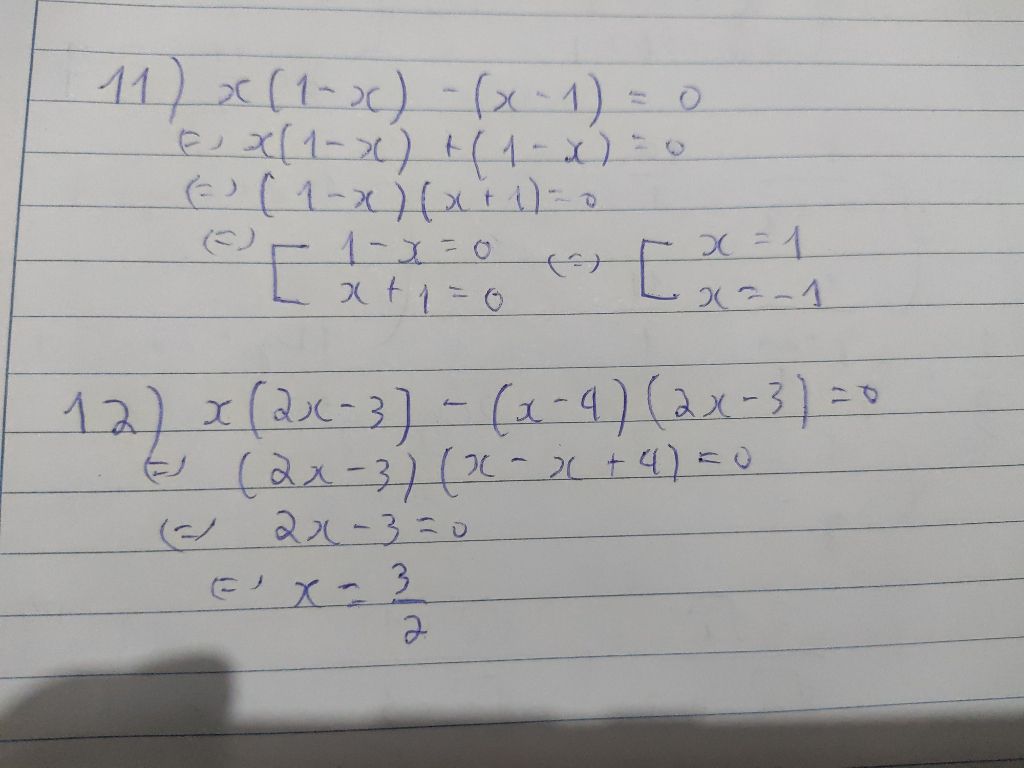 11) x(1-x) - (x-1) = 0
(=) x(1-x) + (1-x) = 0
(=) (1-x)(x+1) = 0
(=) [ 1-x=0 (=) [ x=1
x+1=0 x=-1
12) x(2x-3) - (x-4)(2x-3) = 0
(=) (2x-3)(x-x+4) = 0
(=) 2x-3=0
(=) x = 3/2